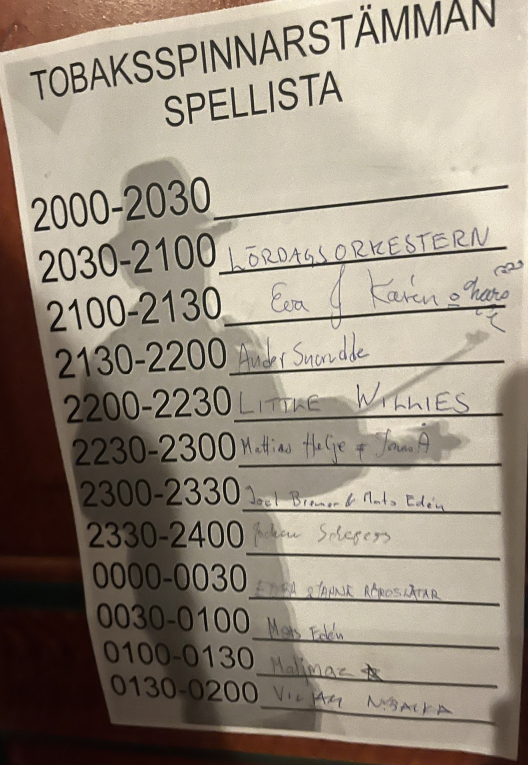 TOBAKSSPINNARSTÄMMAN
SPELLISTA
2000-2030
2030-2100 LÖRDAGSORKESTERN
2100-2130 Eva J Karen
2130-2200 Ander
2200-2230 LITTLE WILLIES
2230-2300 Mattias Helge & Jonas Å
2300-2330 Joel Bremer & Mats Edén
2330-2400
0000-0030
0030-0100 Mats Edén
0100-0130 Malimaz
0130-0200